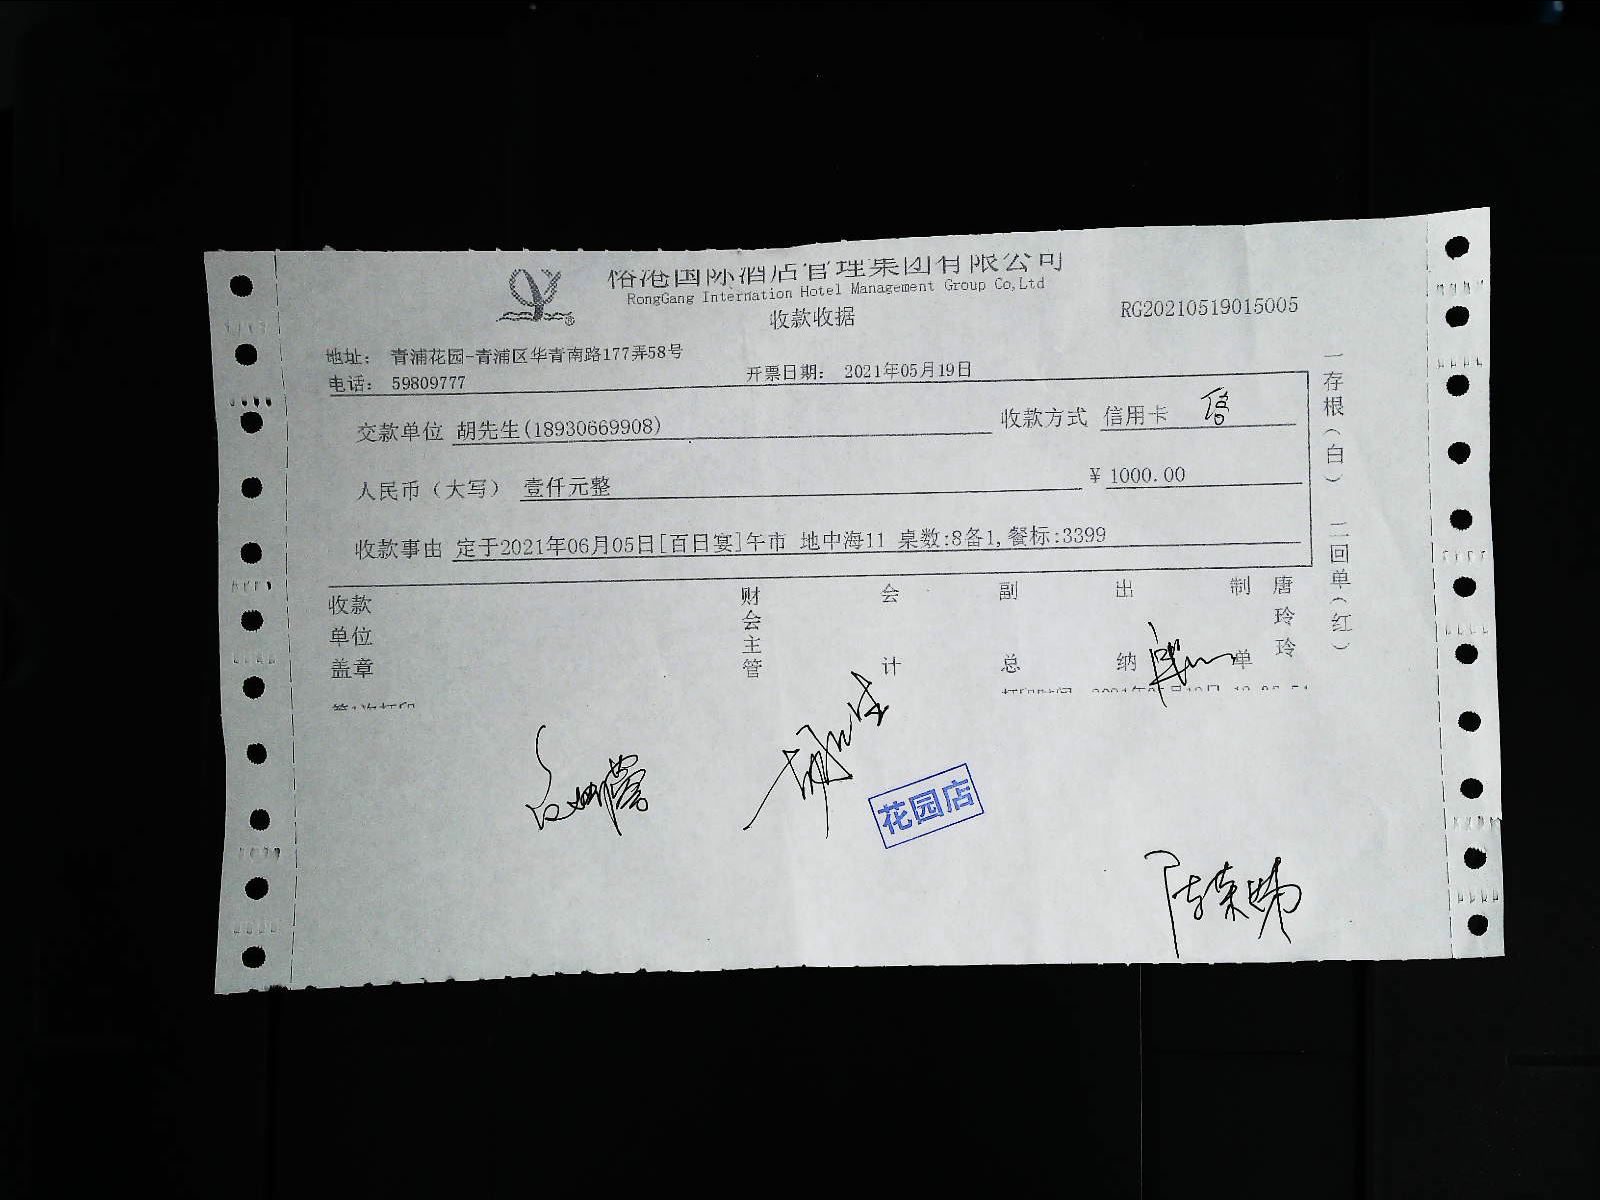 俗港国际酒店管理集团有限公司
RongGang Internation Hotel Management Group Co,Ltd
收款收据
RG20210519015005
地址： 青浦花园-青浦区华青南路177弄58号
电话： 59809777
开票日期： 2021年05月19日
交款单位 胡先生(18930669908)
收款方式 信用卡 信
人民币（大写） 壹仟元整
¥ 1000.00
收款事由 定于2021年06月05日[百日宴]午市 地中海11 桌数:8备1,餐标:3399
一存根（白） 二回单（红）
收款单位盖章
财会主管
会计
副总
出纳
制单
唐玲玲
第1次打印
花园店